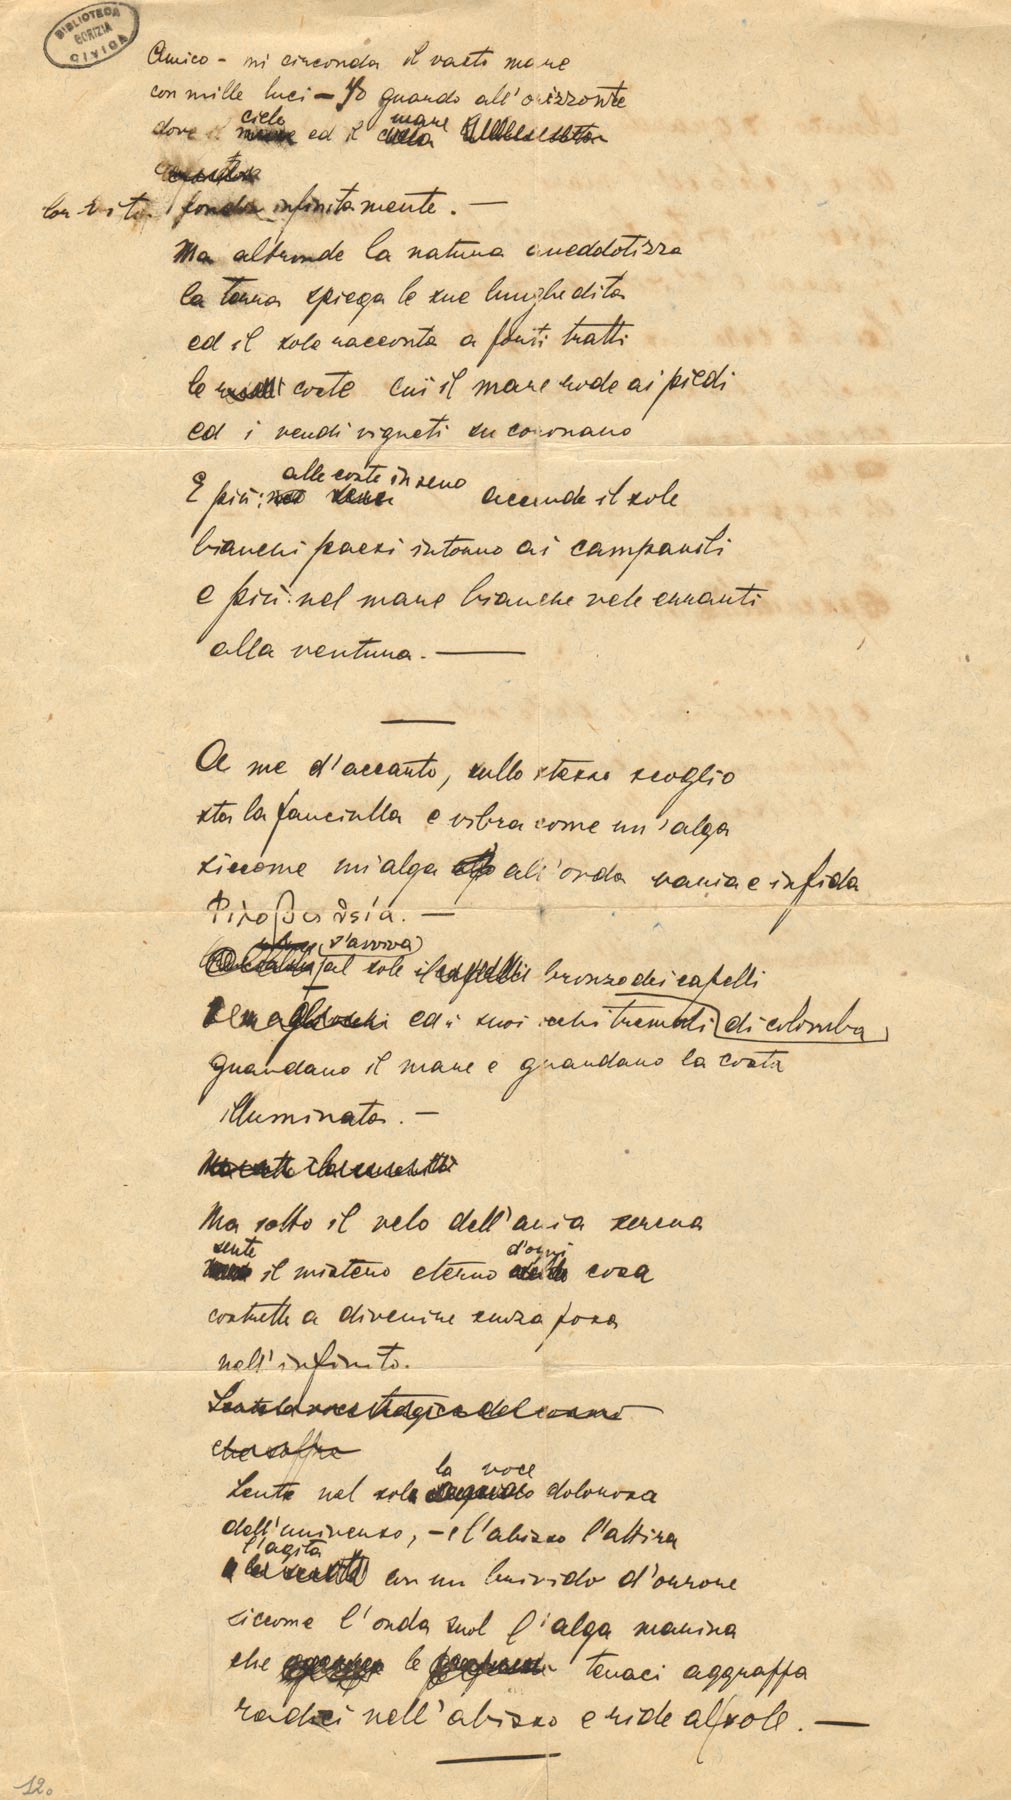 BIBLIOTECA
GORIZIA
CIVICA
Amico – mi circonda il vasto mare
con mille luci – Io guardo all'orizzonte
cielo mare
dove il mare ed il cielo
con vita fonde infinitamente. –
Ma altronde la natura aneddotizza
la terra spiega le sue lunghe dita
ed il sole racconta a forti tratti
le coste cui il mare rode ai piedi
ed i verdi vigneti su coronano
alle coste in seno
E più: accende il sole
bianchi paesi intorno ai campanili
e più: nel mare bianche vele erranti
alla ventura. –
A me d'accanto, sullo stesso scoglio
sta la fanciulla e vibra come un'alga
siccome un'alga all'onda varia e infida
Φιλοβαθεία. –
(s'avviva)
al sole il bronzo dei capelli
ed i suoi occhi tremuli di colomba
guardano il mare e guardano la costa
illuminata. –
Ma sotto il velo dell'aria serena
sente d'ogni
il mistero eterno cosa
costretta a divenire senza posa
nell'infinito.
Sente la voce tragica del
che soffre
la voce
Sente nel sole dolorosa
dell'universo, – e l'abisso l'attira
l'agita
con un brivido d'orrore
siccome l'onda suol l'alga marina
che le tenaci aggraffa
radici nell'abisso e ride al sole. –
12.